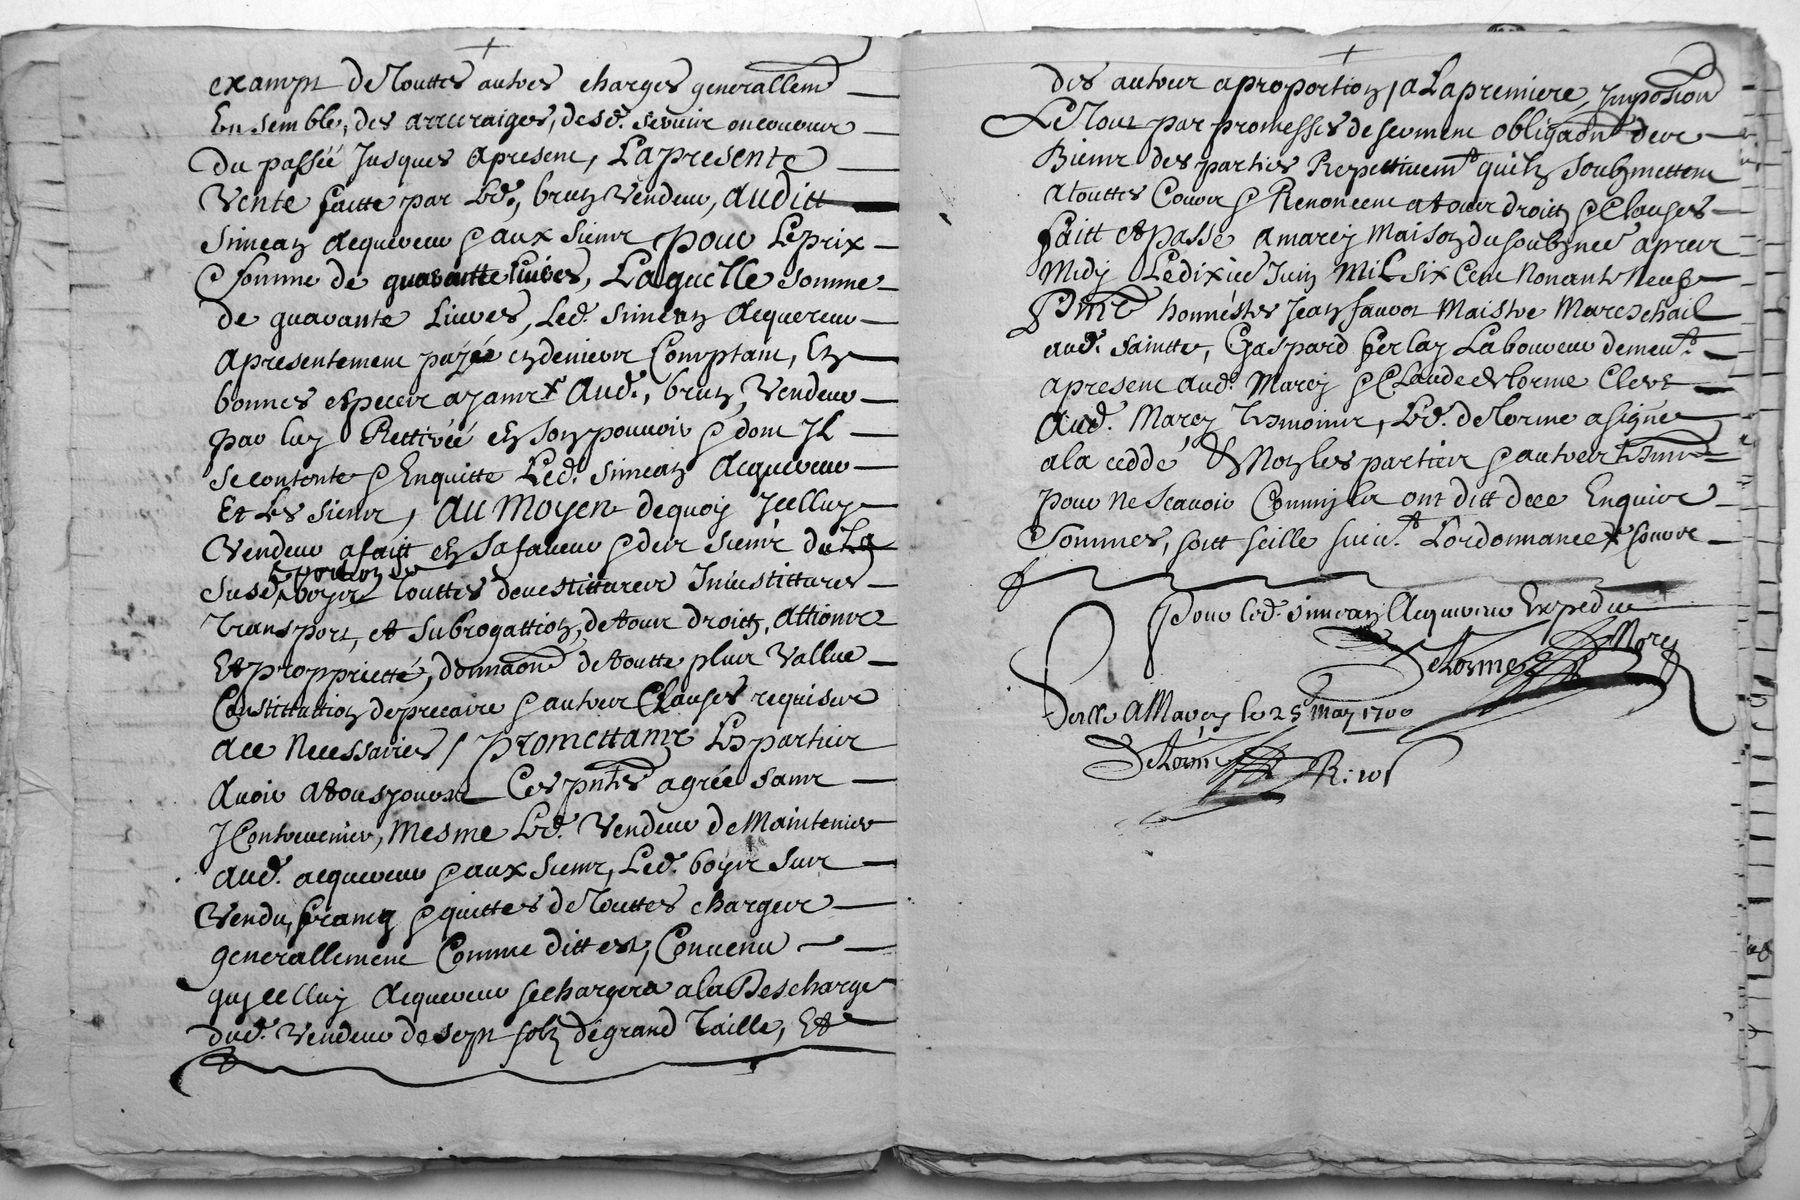 exampt de Touttes autres charges generallemt
Ensemble, des arreraiges, desd. servir encourur
du passéé Jusques apresent, La presente
Vente faitte par Led., brun Vendeur, auditt
Simean Acquereur & aux siens pour Leprix
& somme de quarantte livres, Laquelle somme
de quarante Livres, Led. Simean Acquereur
apresentement payéé en deniers Comptant, En
bonnes especes ayant Aud., brun, Vendeur
par luy Rettiréé en Son pouvoir & dont JL
se contente & Enquitte Led. Simean Acquereur
Et Les Siens, AU Moyen dequoy Jcelluy
Vendeur a faitt en Sa faveur & des siens du
Susd. touttes devestittures Jnvestittures
Transport, et Subrogattion, de tour droitts, Attions
Et proppriette, donnaon de toutte plus Vallue
Constittuttion deprecaire & autres Clauses requises
Ace Necessaires / promettants Les parties
Avoir atousjours Ces pntes agréé sans
y Contrevenir, Mesme Led. Vendeur de Maintenir
Aud. acquereur & aux siens, Led. boyr sur
Vendu, francq & quittes de Touttes charges
generallement Comme ditt est, Convenu
quJcelluy Acquereur sechargera a la Descharge
dud. Vendeur de sept solz de grand Taille, Et
des autres aproportion / a La premiere, Jmposion
Le Tout par promesses de serment obligaon de
Biens des parties Respettivemt quilz soubzmettent
a touttes Cours & Renoncent a tour droitts & Clauses
faitt et passé a marcy Maison du soubzné apres
Midy Le dixie Juin MiL six Cent Nonante Neufs
honnestes Jean favor Maistre Mareschail
aud. Saintte, Gaspard ferlay Laboureur demeut.
apresent aud. Marcy & Claude delorme Clerc
Aud. Marcy Tesmoins, Led. delorme a signé
a la cedde & Non les parties & autres tesmoins
pour Ne scavoir Comm ils ont ditt dece Enquis
Sommes, soitt seille suiv. L'ordonnance
Pour led. Simean Acquereur Expedie
Delorme
Seille A Marcy le 25 May 1700
Delorme
R: 10s